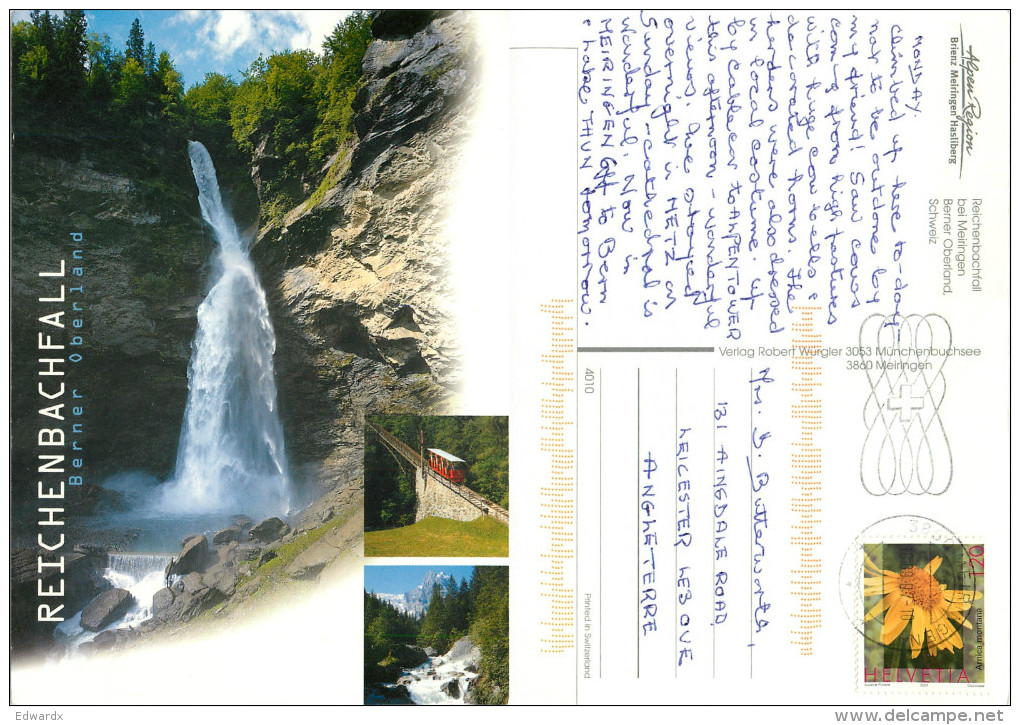 REICHENBACHFALL
Berner Oberland
Alpen Region
Brienz Meiringen Hasliberg
Reichenbachfall
bei Meiringen
Berner Oberland,
Schweiz
MONDAY.
Climbed up here to-day-
not to be outdone by
my friend! Saw cows
com-g from high pastures
with huge cow bells &
decorated horns. The
herders were also dressed
in local costume. Up
by cablecar to ALPEN TOWER
this afternoon - wonderful
views. We stayed
overnight in METZ on
Sunday - cathedral is
wonderful. Now in
MEIRINGEN. Off to Bern
& Lake THUN tomorrow.
Verlag Robert Würgler 3053 Münchenbuchsee
3860 Meiringen
4010
Printed in Switzerland
Butterworth,
131 AINSDALE ROAD,
LEICESTER LE3 0UE
ANGLETERRE
HELVETIA
Arnica montana
Edwardx
www.delcampe.net